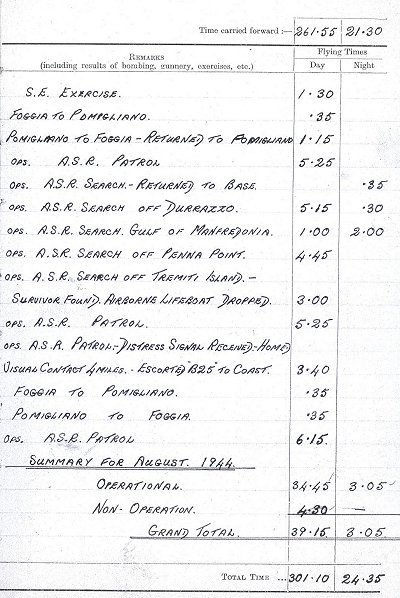 Time carried forward :— 261.55 21.30
REMARKS
(including results of bombing, gunnery, exercises, etc.)
Flying Times
Day Night
S.E. EXERCISE. 1.30
FOGGIA TO POMPGLIANO. .35
POMIGLIANO TO FOGGIA - RETURNED TO POMIGLIANO 1.15
OPS. A.S.R. PATROL 5.25
OPS. A.S.R. SEARCH. - RETURNED TO BASE. .35
OPS. A.S.R. SEARCH OFF DURRAZZO. 5.15 .30
OPS. A.S.R. SEARCH. GULF OF MANFREDONIA. 1.00 2.00
OPS. A.S.R. SEARCH OFF PENNA POINT. 4.45
OPS. A.S.R. SEARCH OFF TREMITI ISLAND. -
SURVIVOR FOUND. AIRBORNE LIFEBOAT DROPPED. 3.00
OPS. A.S.R. PATROL. 5.25
OPS. A.S.R. PATROL:- DISTRESS SIGNAL RECEIVED - HOMED
VISUAL CONTACT 4 MILES. - ESCORTED B25 TO COAST. 3.40
FOGGIA TO POMIGLIANO. .35
POMIGLIANO TO FOGGIA. .35
OPS. A.S.R. PATROL 6.15.
SUMMARY FOR AUGUST. 1944.
OPERATIONAL. 34.45 3.05
NON-OPERATION. 4.30 —
GRAND TOTAL. 39.15 3.05
TOTAL TIME ... 301.10 24.35